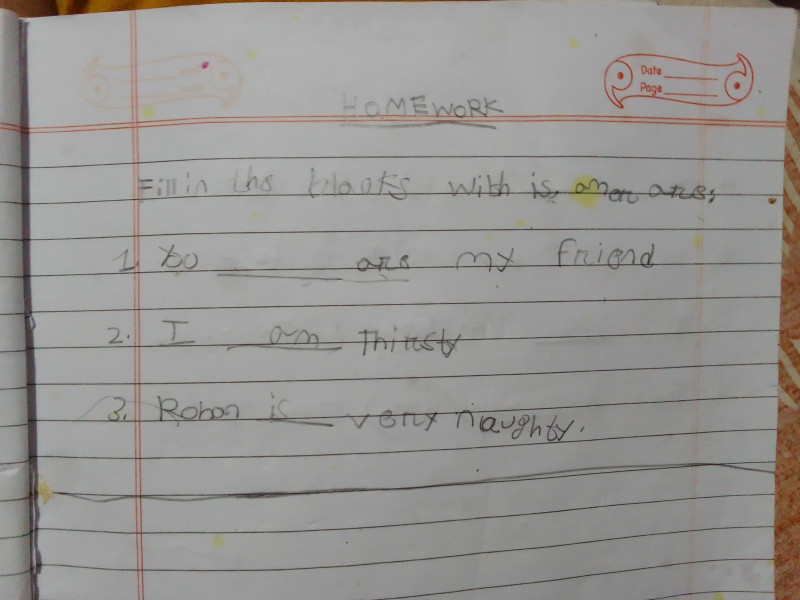 Date
Page
HOMEWORK
Fill in the blanks with is, am or are.
1. You are my friend
2. I am Thirsty
3. Rohan is very naughty.